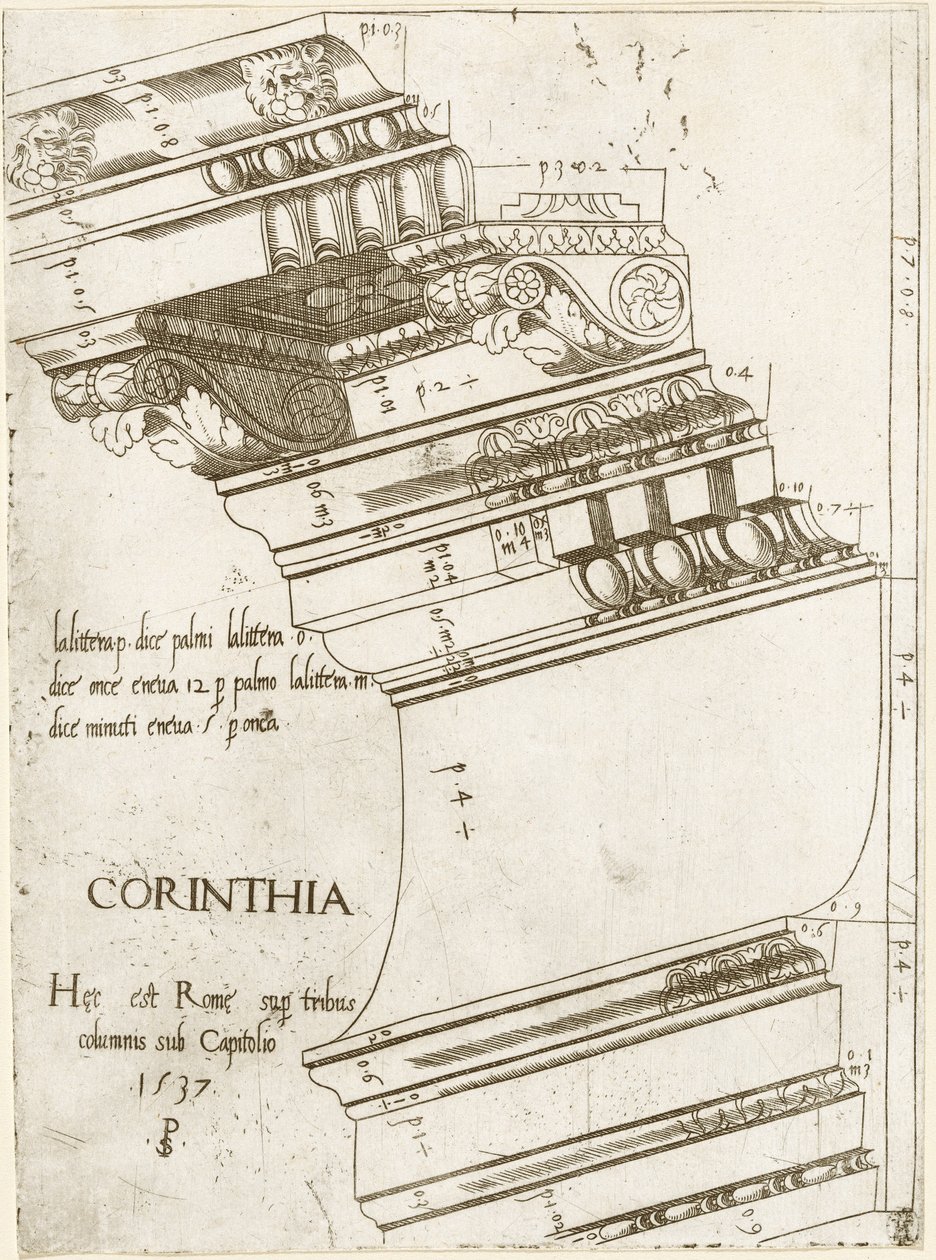 p.1.0.3
03
p.1.0.8
0.5
p.3.0.2
0.5
p.1.0.5
03
p.7.0.8.
p1.01
p.2 ÷
0.4
m3
06 m3
0.10
0.10
m4
m3
0.7 ÷
p1.04
m2
lalittera.p. dice palmi lalittera .o.
dice once eneua 12 ꝑ palmo lalittera.m.
dice minuti eneua .5. ꝑ onca
p.4 ÷
p.4 ÷
CORINTHIA
0.9
0.6
p.4 ÷
Hęc est Romę suꝑ tribus
columnis sub Capitolio
.1537.
PS
0.2
0.6
0.1
m3
p1 ÷
03
p.1.02
0.9